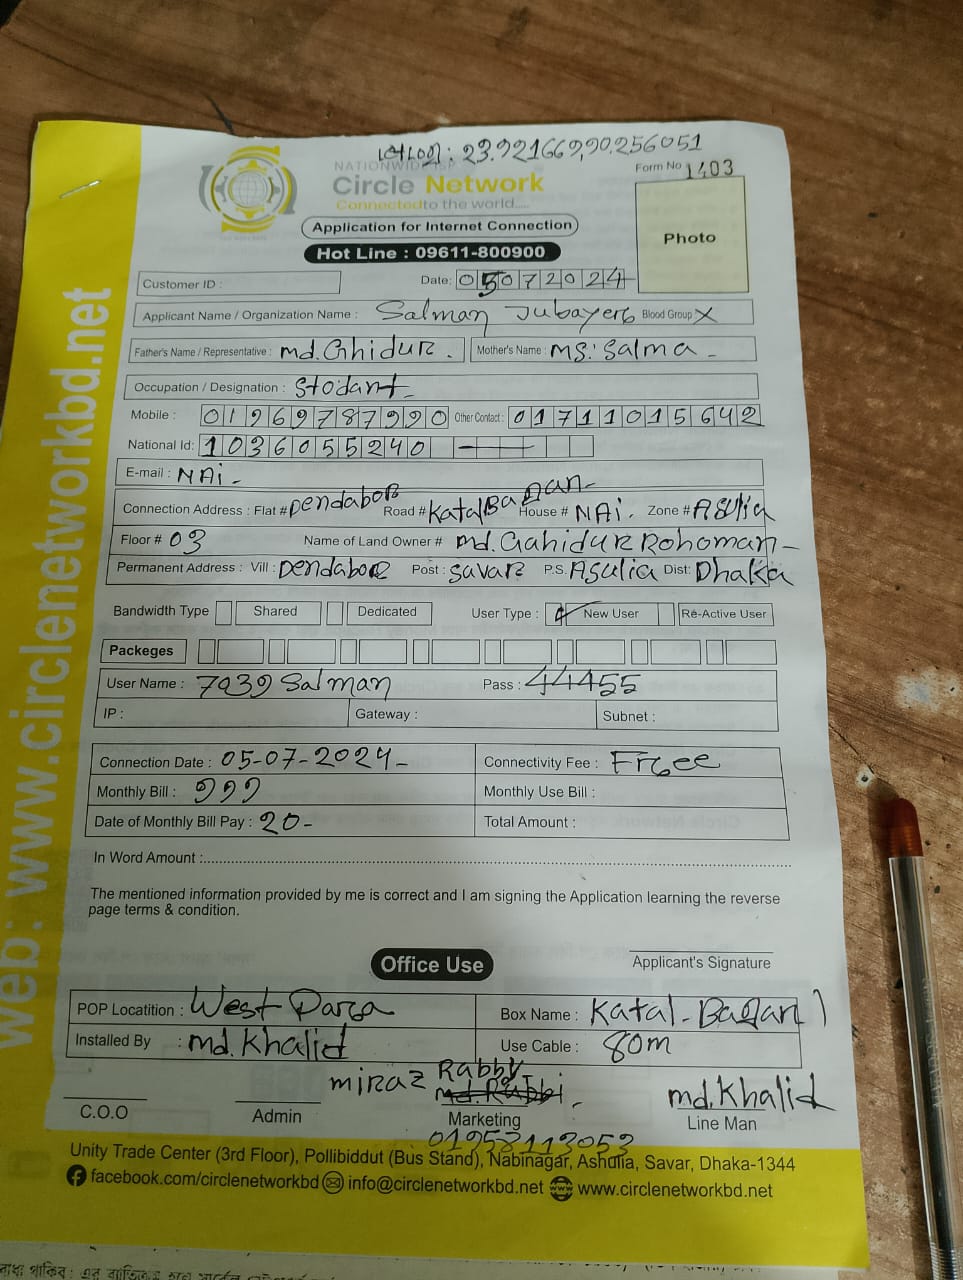 লোকেশন : 23.921669,90.256051
NATIONWIDE ISP
Circle Network
Connected to the world.....
Form No 1403
Application for Internet Connection
Hot Line : 09611-800900
Photo
Customer ID :
Date: 05072024
Applicant Name / Organization Name : Salman Jubayer Blood Group X
Father's Name / Representative : md. Ghidur. Mother's Name : MS: Salma -
Occupation / Designation : Stodant -
Mobile : 01969787990 Other Contact : 01711015642
National Id: 1036055240
E-mail : NAi -
Connection Address : Flat # Dendabor Road # Katal Bagan - House # NAi. Zone # Asulia
Floor # 03 Name of Land Owner # md. Gahidur Rohoman -
Permanent Address : Vill : Dendabor Post : Savar P.S. Asulia Dist: Dhaka
Bandwidth Type Shared Dedicated User Type : New User Re-Active User
Packeges
User Name : 7039 Salman Pass : 44455
IP : Gateway : Subnet :
Connection Date : 05-07-2024 - Connectivity Fee : Free
Monthly Bill : 999 Monthly Use Bill :
Date of Monthly Bill Pay : 20 - Total Amount :
In Word Amount :
The mentioned information provided by me is correct and I am signing the Application learning the reverse
page terms & condition.
Applicant's Signature
Office Use
POP Locatition : West Para Box Name : Katal-Bagan 1
Installed By : md. Khalid Use Cable : 80m
miraz Rabby
md. Rabbi - md. Khalid
C.O.O Admin Marketing Line Man
01958113053
Unity Trade Center (3rd Floor), Pollibiddut (Bus Stand), Nabinagar, Ashulia, Savar, Dhaka-1344
facebook.com/circlenetworkbd info@circlenetworkbd.net www.circlenetworkbd.net
web: www.circlenetworkbd.net